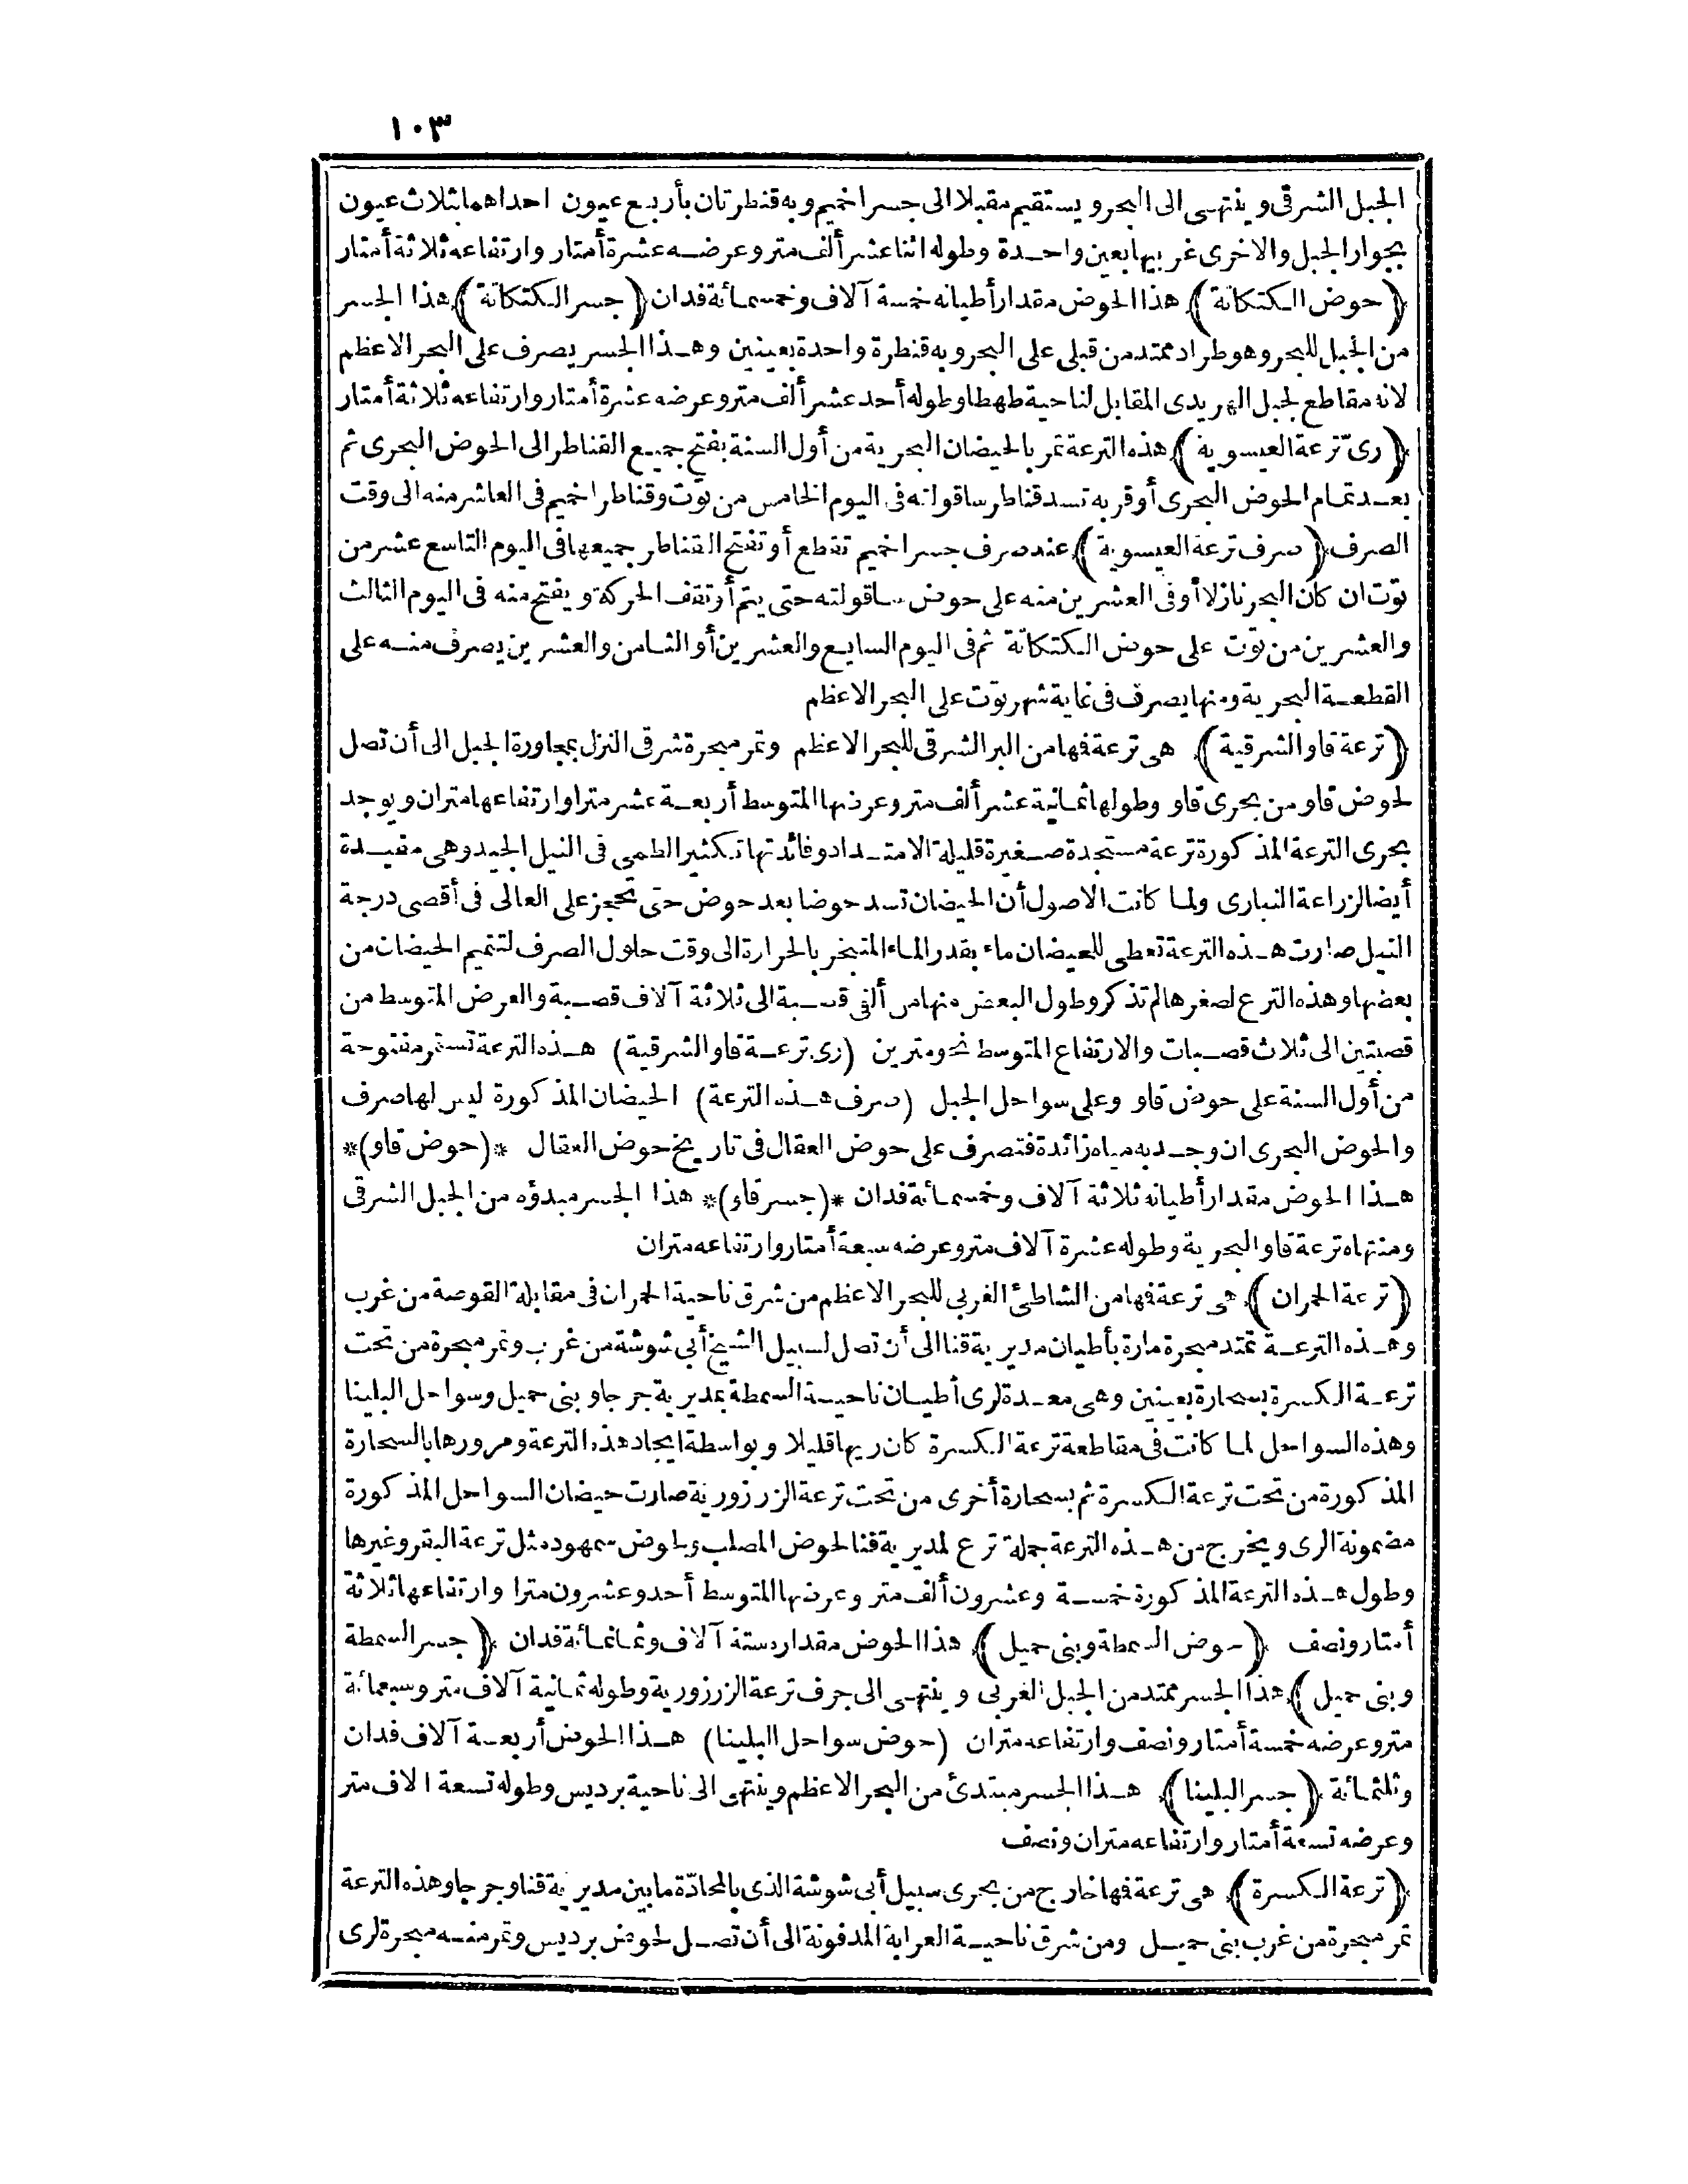 ١٠٣
الجبل الشرقى وينتهى الى البحر ويستقيم مقبلا الى جسر اخميم وبه قنطرتان بأربع عيون احداهما بثلاث عيون
بجوار الجبل والاخرى غربيها بعين واحدة وطوله اثنا عشر ألف متر وعرضه عشرة أمتار وارتفاعه ثلاثة أمتار
(حوض الكتكاتة) هذا الحوض مقدار أطيانه خمسة آلاف وخمسمائة فدان (جسر الكتكاتة) هذا الجسر
من الجبل للبحر وهو طراد ممتد من قبلى على البحر وبه قنطرة واحدة بعينين وهذا الجسر يصرف على البحر الاعظم
لانه مقاطع لجبل الهريدى المقابل لناحية طهطا وطوله أحد عشر ألف متر وعرضه عشرة أمتار وارتفاعه ثلاثة أمتار
(رىّ ترعة العيسوية) هذه الترعة تمر بالحيضان البحرية من أول السنة بفتح جميع القناطر الى الحوض البحرى ثم
بعد تمام الحوض البحرى أو قربه تسد قناطر ساقولته فى اليوم الخامس من توت وقناطر اخميم فى العاشر منه الى وقت
الصرف (صرف ترعة العيسوية) عند صرف جسر اخميم تقطع أو تفتح القناطر جميعها فى اليوم التاسع عشر من
توت ان كان البحر نازلا أو فى العشرين منه على حوض ساقولته حتى يتم أو تقف الحركة ويفتح منه فى اليوم الثالث
والعشرين من توت على حوض الكتكاتة ثم فى اليوم السابع والعشرين أو الثامن والعشرين يصرف منه على
القطعة البحرية ومنها يصرف فى غاية شهر توت على البحر الاعظم
(ترعة قاو الشرقية) هى ترعة فمها من البر الشرقى للبحر الاعظم وتمر مبحرة شرقى النزل بمجاورة الجبل الى أن تصل
لحوض قاو من بحرى قاو وطولها ثمانية عشر ألف متر وعرضها المتوسط أربعة عشر مترا وارتفاعها متران ويوجد
بحرى الترعة المذكورة ترعة مستجدة صغيرة قليلة الامتداد وفائدتها تكثير الطمى فى النيل الجيد وهى مفيدة
أيضا لزراعة النبارى ولما كانت الاصول أن الحيضان تسد حوضا بعد حوض حتى تحجز على العالى فى أقصى درجة
النيل صارت هذه الترعة تعطى للحيضان ماء بقدر الماء المتبخر بالحرارة الى وقت حلول الصرف لتتميم الحيضان من
بعضها وهذه الترع لصغرها لم تذكر وطول البعض منها من ألفى قصبة الى ثلاثة آلاف قصبة والعرض المتوسط من
قصبتين الى ثلاث قصبات والارتفاع المتوسط نحو مترين (رى ترعة قاو الشرقية) هذه الترعة تستمر مفتوحة
من أول السنة على حوض قاو وعلى سواحل الجبل (صرف هذه الترعة) الحيضان المذكورة ليس لها صرف
والحوض البحرى ان وجد به مياه زائدة فتصرف على حوض العقال فى تاريخ حوض العقال *(حوض قاو)*
هذا الحوض مقدار أطيانه ثلاثة آلاف وخمسمائة فدان *(جسر قاو)* هذا الجسر مبدؤه من الجبل الشرقى
ومنتهاه ترعة قاو البحرية وطوله عشرة آلاف متر وعرضه سبعة أمتار وارتفاعه متران
(ترعة الحمران) هى ترعة فمها من الشاطئ الغربى للبحر الاعظم من شرق ناحية الحمران فى مقابلة القوصة من غرب
وهذه الترعة تمتد مبحرة مارة بأطيان مديرية قنا الى أن تصل لسبيل الشيخ أبى شوشة من غرب وتمر مبحرة من تحت
ترعة الكسرة بسحارة بعينين وهى معدة لرى أطيان ناحية السمطة بمديرية جرجا وبنى حميل وسواحل البلينا
وهذه السواحل لما كانت فى مقاطعة ترعة الكسرة كان ريها قليلا وبواسطة ايجاد هذه الترعة ومرورها بالسحارة
المذكورة من تحت ترعة الكسرة ثم بسحارة أخرى من تحت ترعة الزرزورية صارت حيضان السواحل المذكورة
مضمونة الرى ويخرج من هذه الترعة جملة ترع لمديرية قنا لحوض المصلب ولحوض سمهود مثل ترعة البقر وغيرها
وطول هذه الترعة المذكورة خمسة وعشرون ألف متر وعرضها المتوسط أحد وعشرون مترا وارتفاعها ثلاثة
أمتار ونصف (حوض السمطة وبنى حميل) هذا الحوض مقداره ستة آلاف وثمانمائة فدان (جسر السمطة
وبنى حميل) هذا الجسر ممتد من الجبل الغربى وينتهى الى جرف ترعة الزرزورية وطوله ثمانية آلاف متر وسبعمائة
متر وعرضه خمسة أمتار ونصف وارتفاعه متران (حوض سواحل البلينا) هذا الحوض أربعة آلاف فدان
وثلثمائة (جسر البلينا) هذا الجسر مبتدئ من البحر الاعظم وينتهى الى ناحية برديس وطوله تسعة الاف متر
وعرضه تسعة أمتار وارتفاعه متران ونصف
(ترعة الكسرة) هى ترعة فمها خارج من بحرى سبيل أبى شوشة الذى بالمحادّة ما بين مديرية قنا وجرجا وهذه الترعة
تمر مبحرة من غرب بنى حميل ومن شرق ناحية العرابة المدفونة الى أن تصل لحوض برديس وتمر منه مبحرة لرى